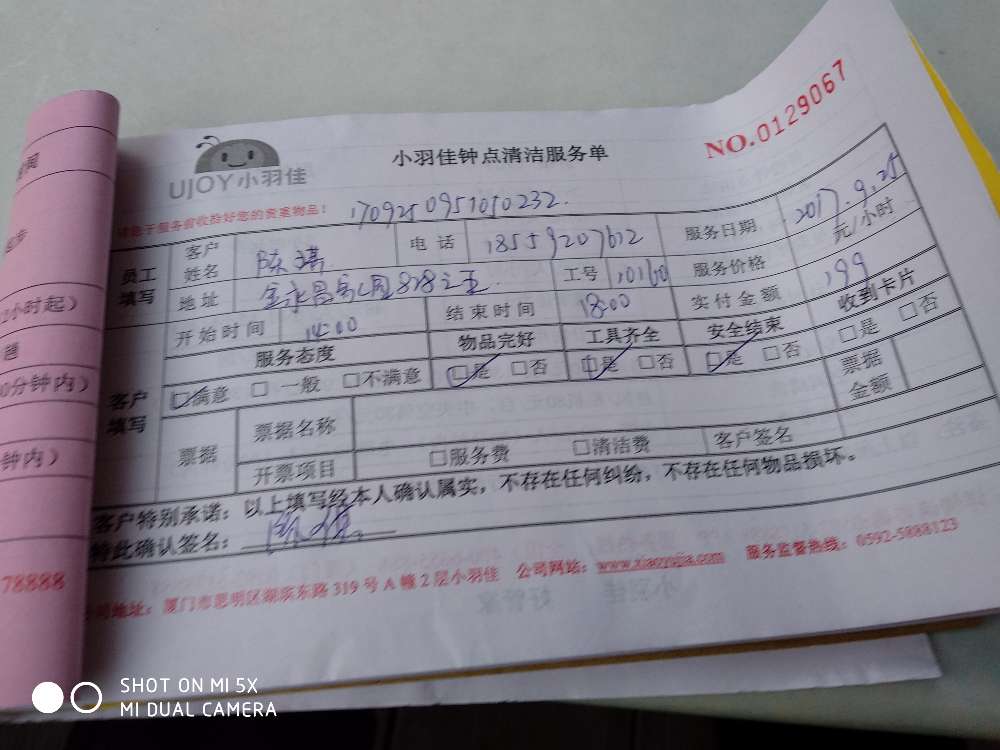 NO.0129067
小羽佳钟点清洁服务单
UJOY小羽佳
请您于服务前收捡好您的贵重物品！
1709250951050232.
员工填写 客户姓名 陈 电话 18559207612 服务日期 2017.9.25
地址 828之五 工号 10160 服务价格 元/小时
开始时间 14:00 结束时间 18:00 实付金额 199
客户填写 服务态度 物品完好 工具齐全 安全结束 收到卡片
□满意 □一般 □不满意 □是 □否 □是 □否 □是 □否 □是 □否
票据 票据名称 票据金额
开票项目 □服务费 □清洁费 客户签名
客户特别承诺：以上填写经本人确认属实，不存在任何纠纷，不存在任何物品损坏。
特此确认签名：
公司地址：厦门市思明区湖滨东路319号A幢2层小羽佳 公司网站：www.xiaoyujia.com 服务监督热线：0592-5888123
小时起）
通
0分钟内）
钟内）
78888
SHOT ON MI 5X
MI DUAL CAMERA